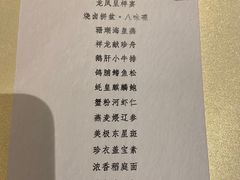 龙凤呈祥宴
烧卤拼盆·八味碟
珊瑚海皇燕
祥龙献珍舟
鹅肝小牛排
鸽脯鳕鱼松
蚝皇麒麟鲍
蟹粉河虾仁
燕麦煨辽参
美极东星斑
珍衣盖宝素
浓香稻庭面